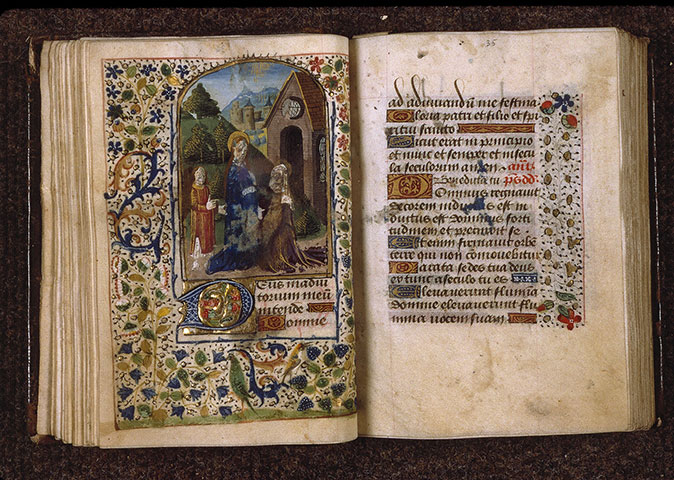 Deus in adiu
torium meū
intende
Domine
35
ad adiuuandū me festina
Gloria patri et filio et spi
ritui sancto
Sicut erat in principio
et nunc et semper et in secu
la seculorum amen añt
Benedicta tu ps dd
Dominus regnauit
decorem indutus est in
dutus est dominus forti
tudinem et precinxit se
Etenim firmauit orbē
terre qui non cōmouebitur
Parata sedes tua deus
ex tunc a seculo tu es
Eleuauerunt flumina
domine eleuauerunt flu
mina uocem suam